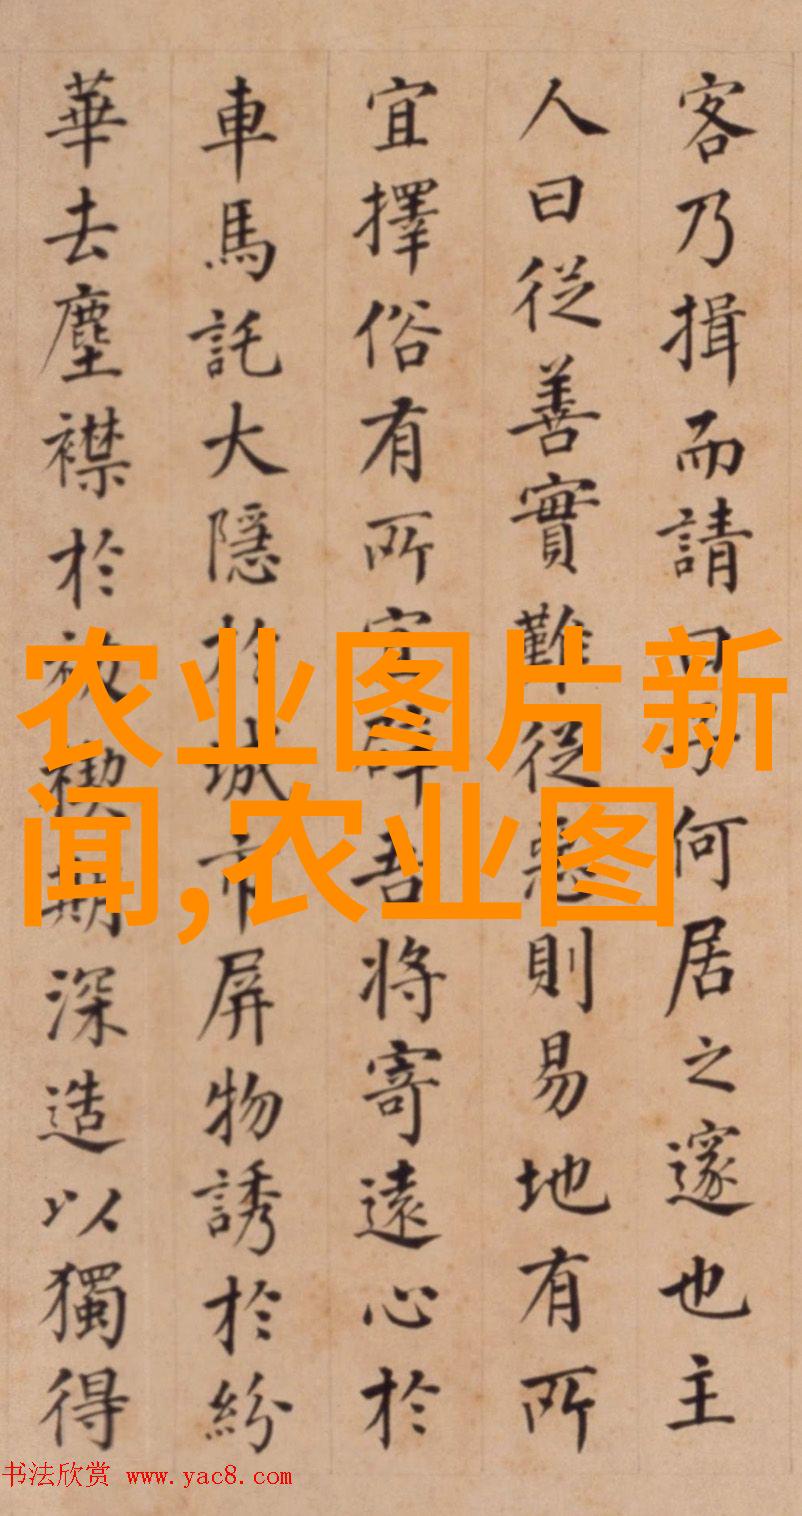 客乃揖而請曰子何居之邃也主
人曰從善實難從惡則易地有所
宜擇俗有所宜吾將寄遠心於
車馬託大隱於城市屏物誘於紛
華去塵襟於祓禊期深造以獨得
农业图片新
闻,农业图
书法欣赏 www.yac8.com